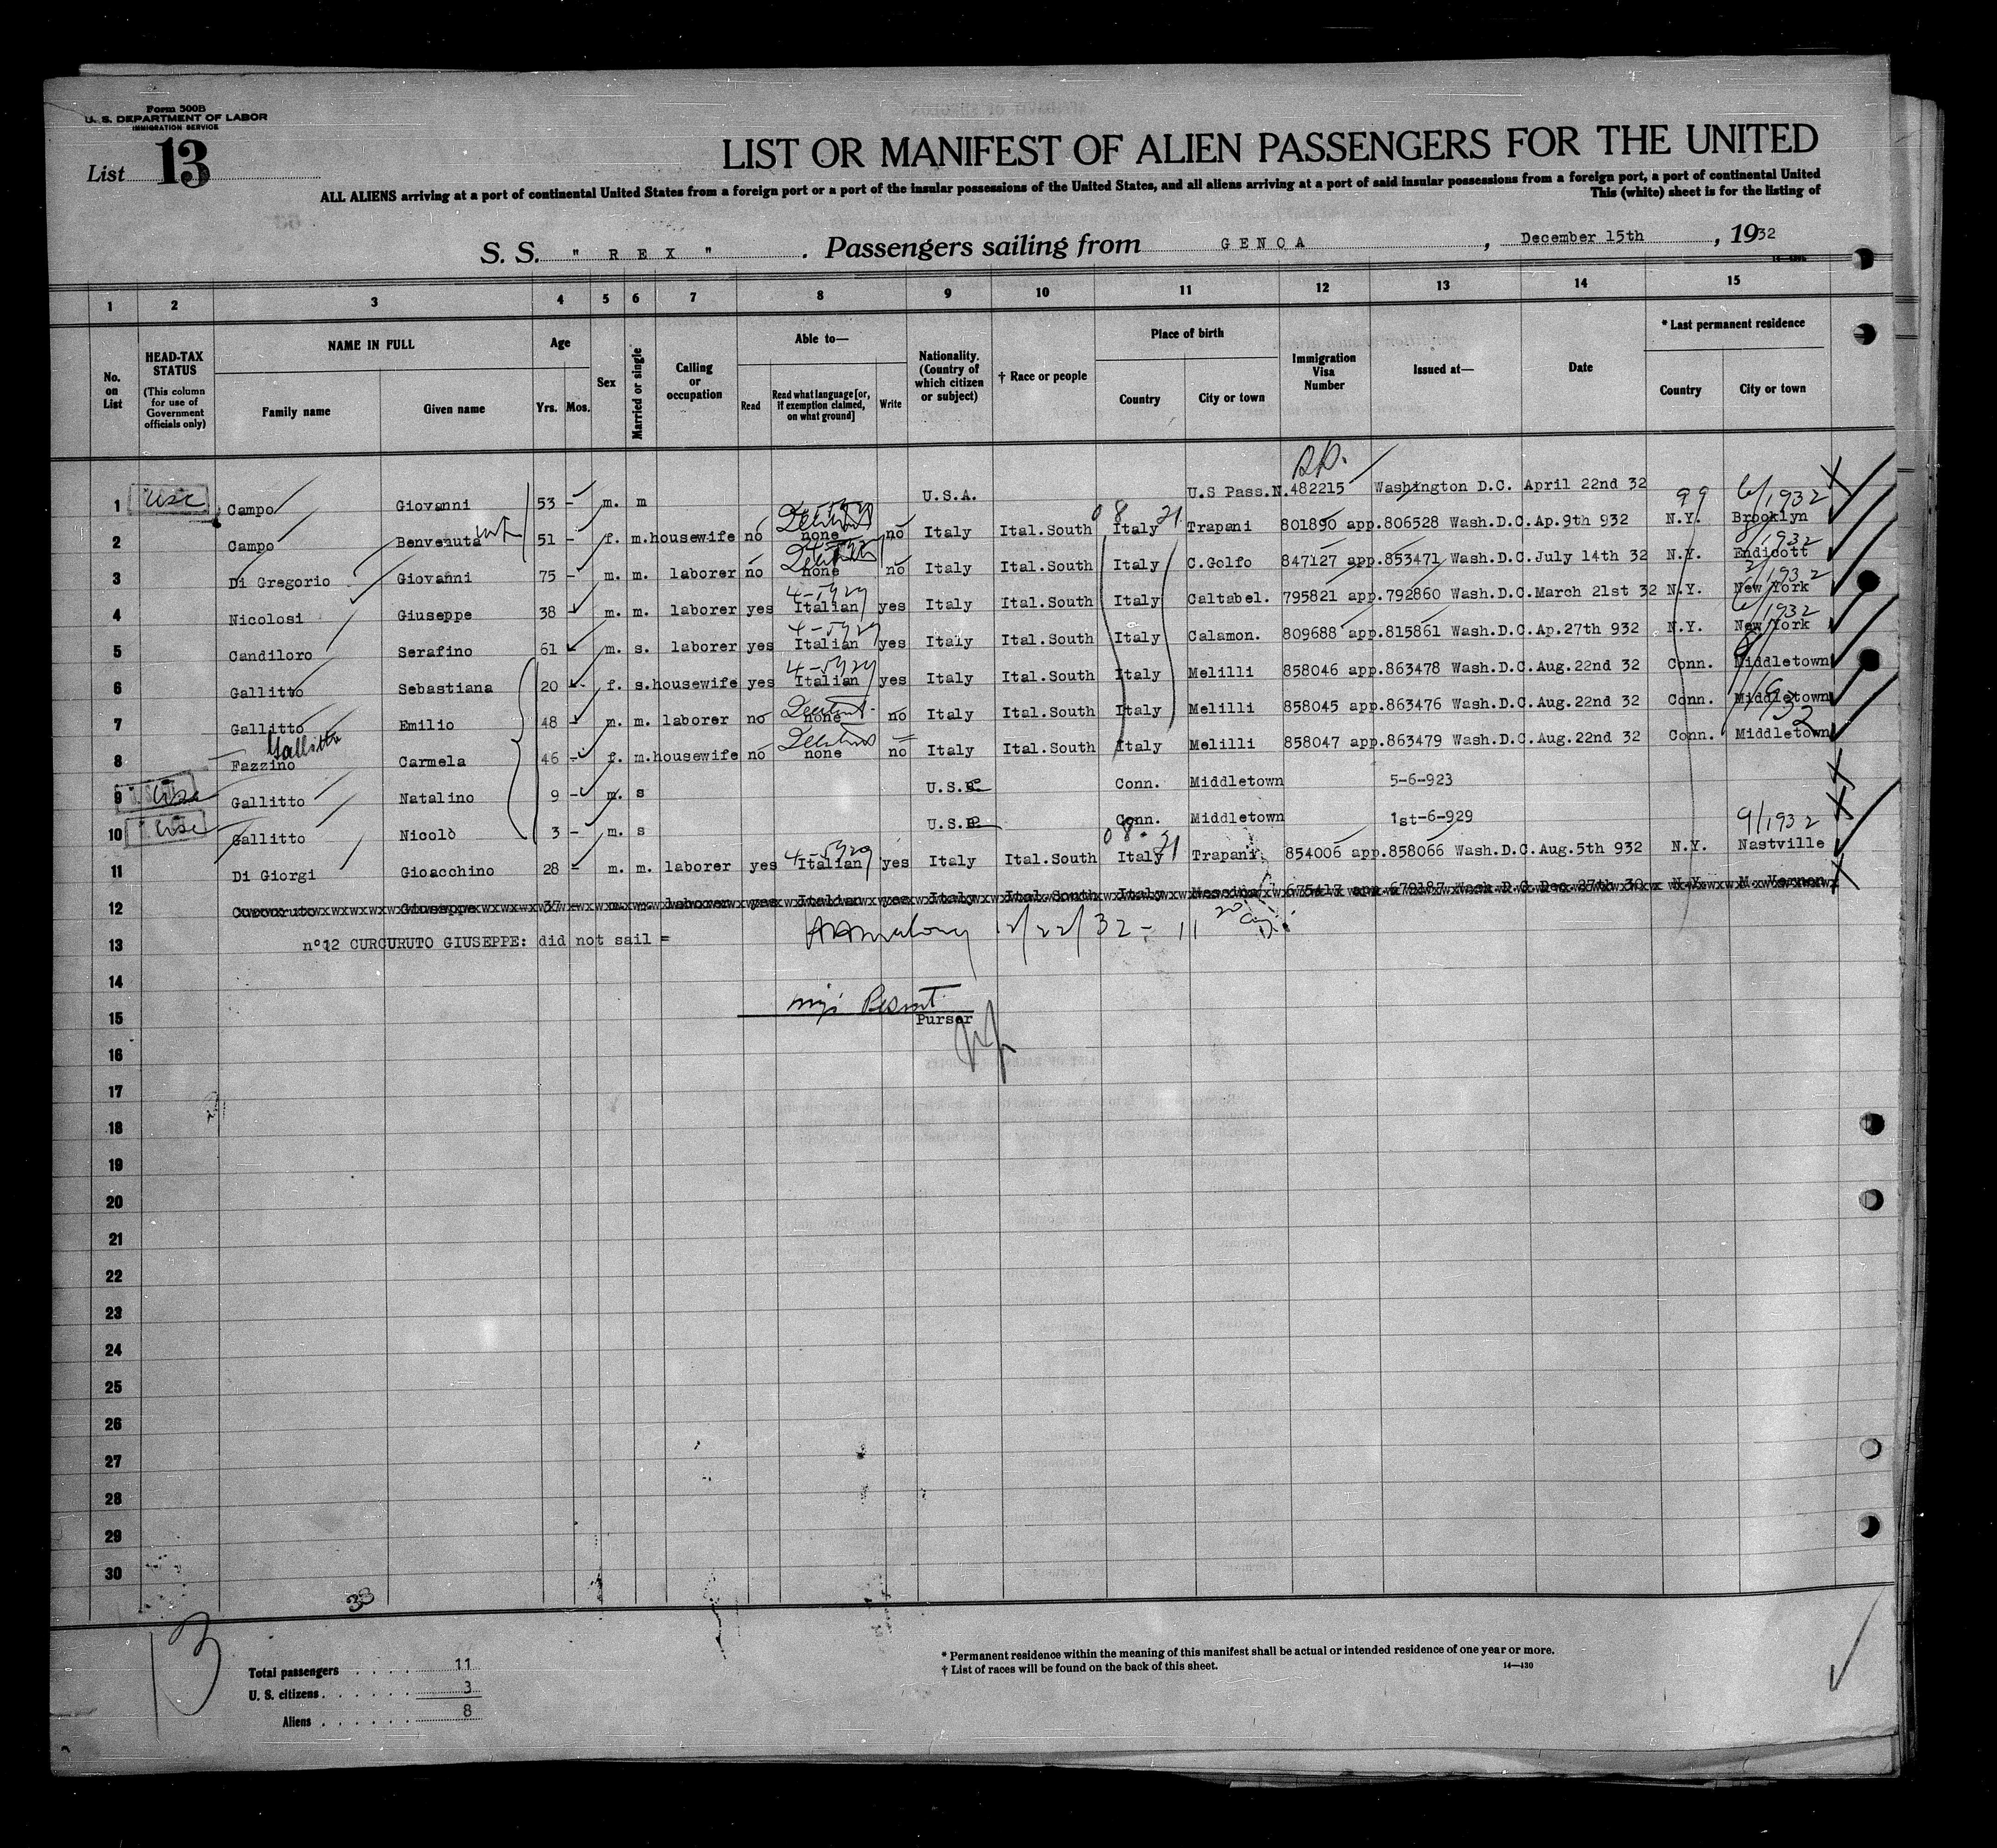 Form 500B
U. S. DEPARTMENT OF LABOR
IMMIGRATION SERVICE
List 13
LIST OR MANIFEST OF ALIEN PASSENGERS FOR THE UNITED
ALL ALIENS arriving at a port of continental United States from a foreign port or a port of the insular possessions of the United States, and all aliens arriving at a port of said insular possessions from a foreign port, a port of continental United
This (white) sheet is for the listing of
S. S. " R E X " . Passengers sailing from G E N O A , December 15th , 1932
1 2 3 4 5 6 7 8 9 10 11 12 13 14 15
No. on List
HEAD-TAX STATUS
(This column for use of Government officials only)
NAME IN FULL
Family name
Given name
Age
Yrs. Mos.
Sex
Married or single
Calling or occupation
Able to—
Read
Read what language [or, if exemption claimed, on what ground]
Write
Nationality. (Country of which citizen or subject)
† Race or people
Place of birth
Country
City or town
Immigration Visa Number
Issued at—
Date
* Last permanent residence
Country
City or town
1 USC Campo Giovanni 53 - m. m U.S.A. U.S Pass.N.482215 Washington D.C. April 22nd 32
99 6/1932
2 Campo Benvenuta wf 51 - f. m. housewife no none no Italy Ital.South Italy Trapani 801890 app.806528 Wash.D.C.Ap.9th 932 N.Y. Brooklyn
8/1932
3 Di Gregorio Giovanni 75 - m. m. laborer no none no Italy Ital.South Italy C.Golfo 847127 app.853471 Wash.D.C.July 14th 32 N.Y. Endicott
4 Nicolosi Giuseppe 38 - m. m. laborer yes Italian yes Italy Ital.South Italy Caltabel. 795821 app.792860 Wash.D.C.March 21st 32 N.Y. New York
6/1932
5 Candiloro Serafino 61 - m. s. laborer yes Italian yes Italy Ital.South Italy Calamon. 809688 app.815861 Wash.D.C.Ap.27th 932 N.Y. New York
6 Gallitto Sebastiana 20 - f. s. housewife yes Italian yes Italy Ital.South Italy Melilli 858046 app.863478 Wash.D.C.Aug.22nd 32 Conn. Middletown
7 Gallitto Emilio 48 - m. m. laborer no none no Italy Ital.South Italy Melilli 858045 app.863476 Wash.D.C.Aug.22nd 32 Conn. Middletown
Gallitto
8 Fazzino Carmela 46 - f. m. housewife no none no Italy Ital.South Italy Melilli 858047 app.863479 Wash.D.C.Aug.22nd 32 Conn. Middletown
9 USC Gallitto Natalino 9 - m. s U.S. Conn. Middletown 5-6-923
10 USC Gallitto Nicolò 3 - m. s U.S. Conn. Middletown 1st-6-929
9/1932
11 Di Giorgi Gioacchino 28 - m. m. laborer yes Italian yes Italy Ital.South Italy Trapani 854006 app.858066 Wash.D.C.Aug.5th 932 N.Y. Nastville
12 Curcuruto Giuseppe 37 - m. m. laborer yes Italian yes Italy Ital.South Italy Messina 675417 app. Wash.D.C. Dec.27th 30 N.Y. M. Vernon
13 n°12 CURCURUTO GIUSEPPE: did not sail =
12/22/32 - 11
14
15
Purser
16
17
18
19
20
21
22
23
24
25
26
27
28
29
30
33
13
Total passengers . . . . 11
U. S. citizens . . . . . . 3
Aliens . . . . . . 8
* Permanent residence within the meaning of this manifest shall be actual or intended residence of one year or more.
† List of races will be found on the back of this sheet. 14—430